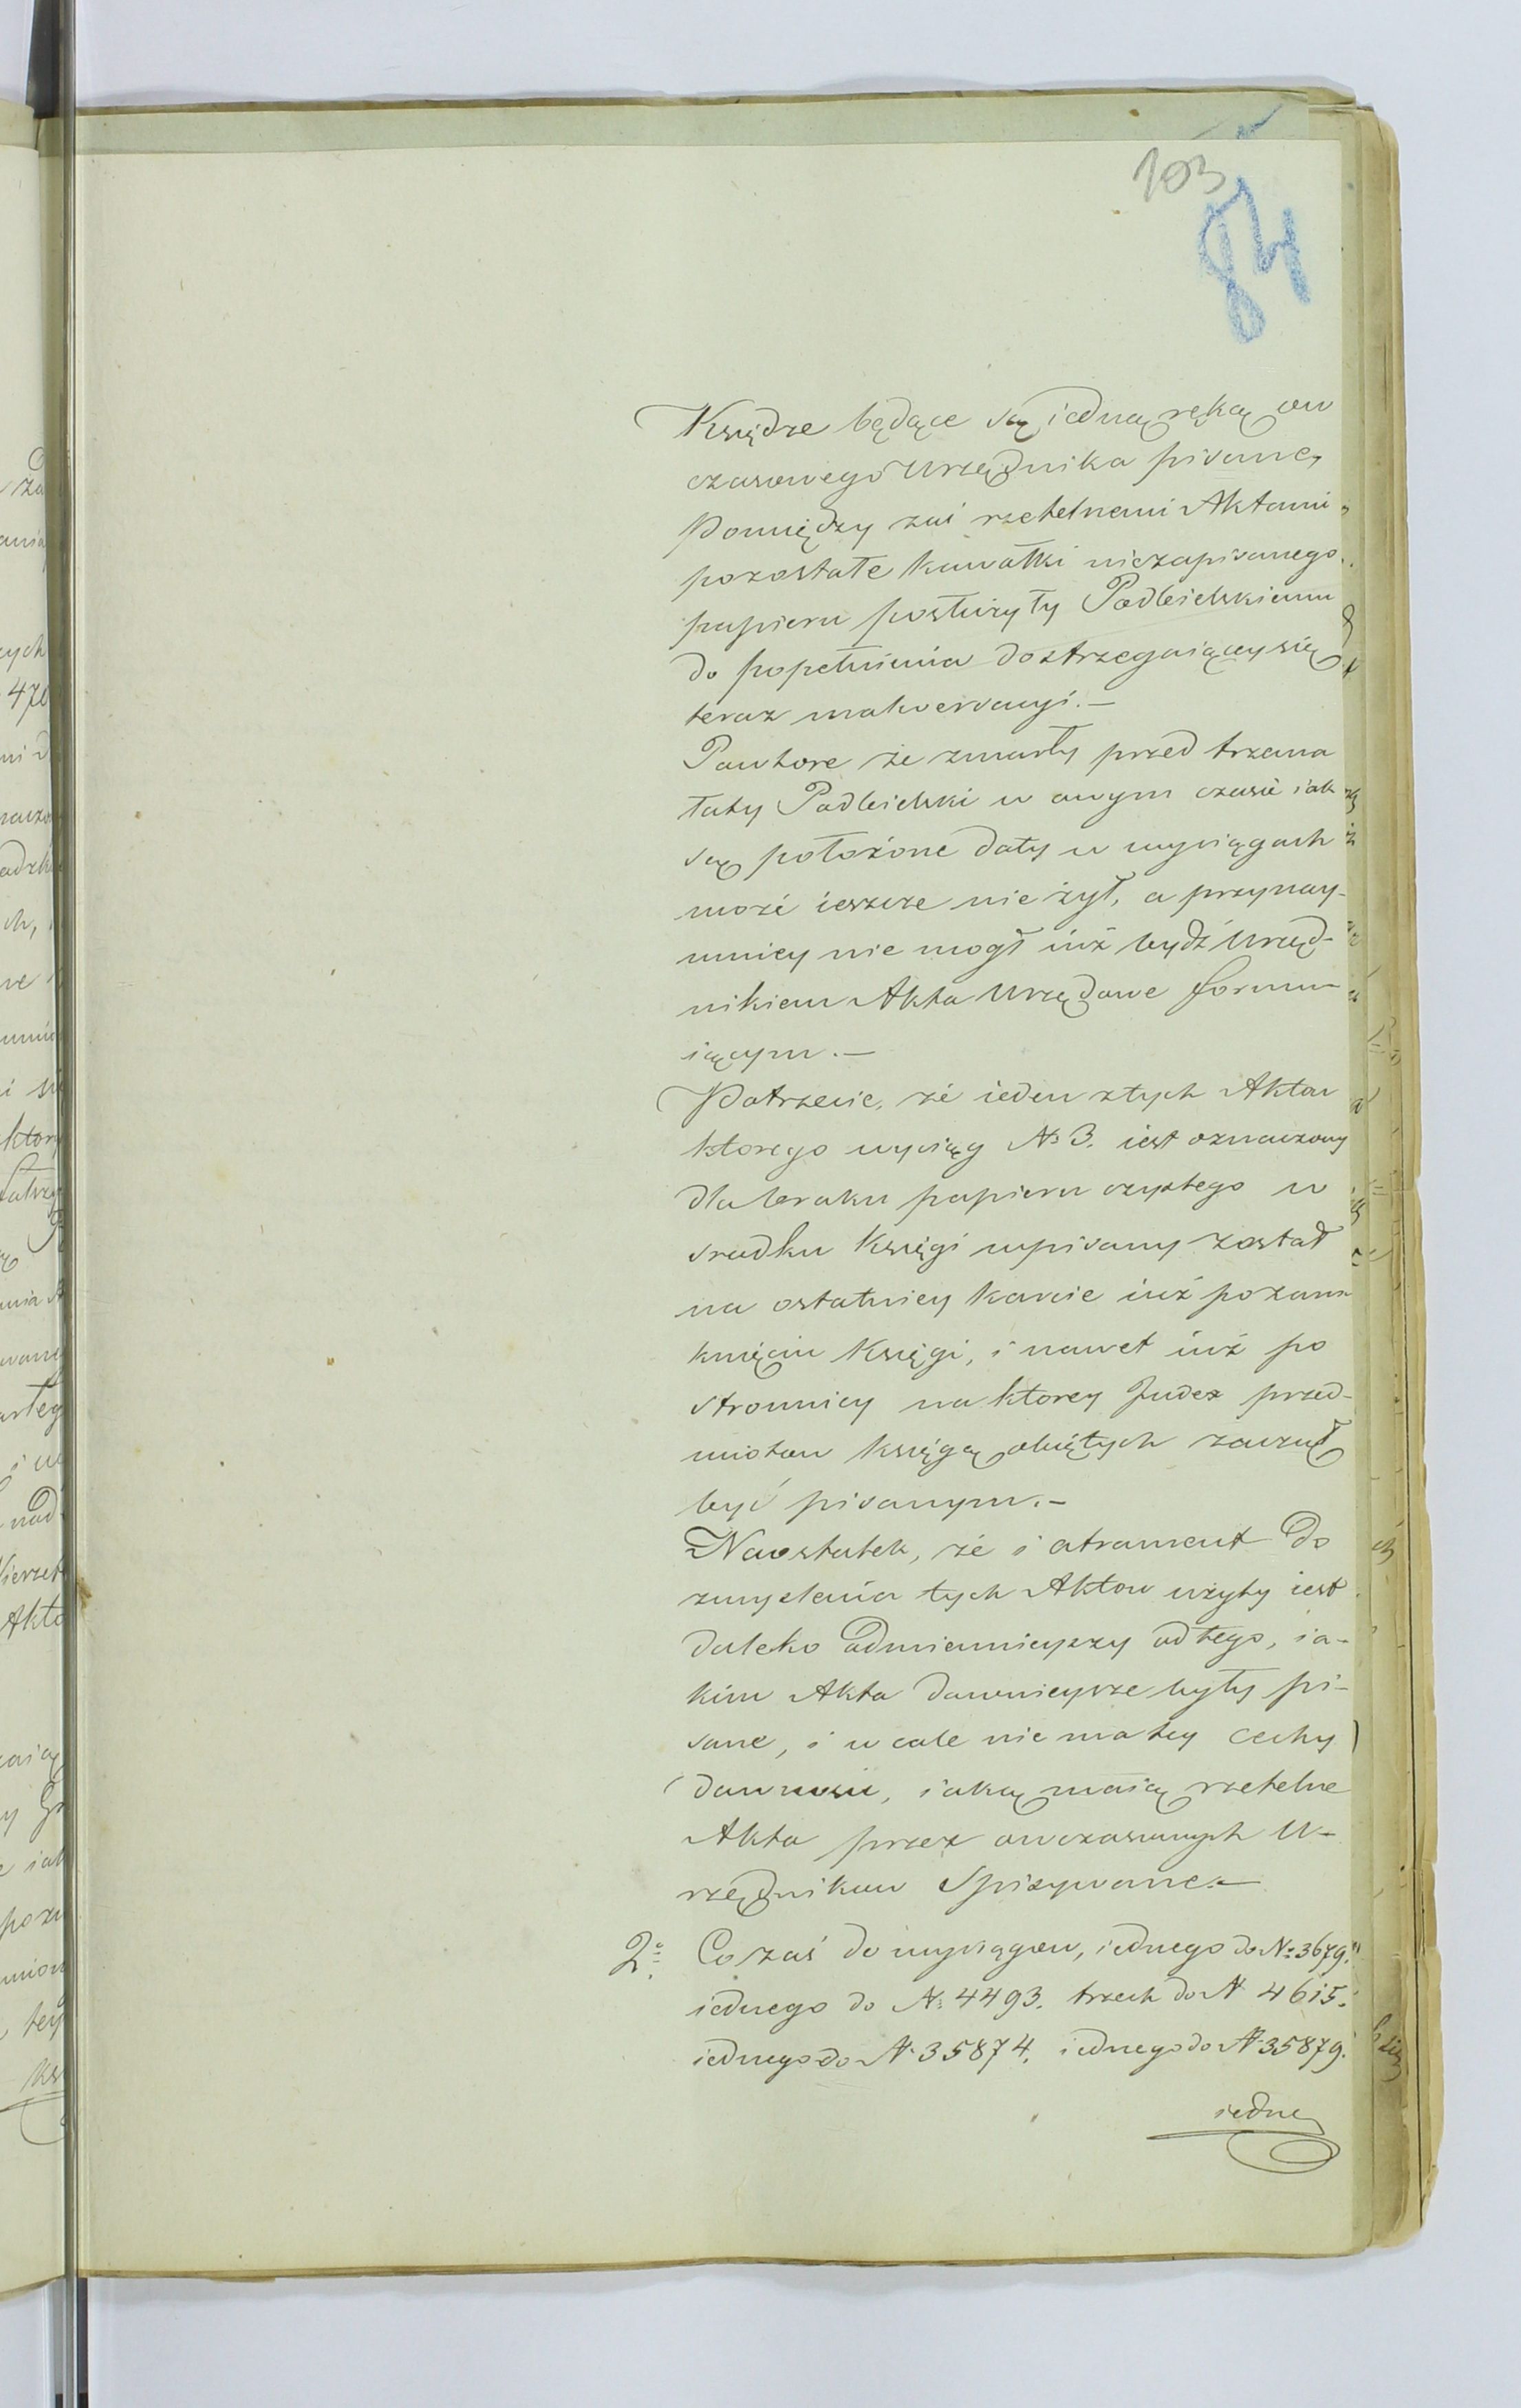 103
84
Księdze będące są iedną ręką ow
czasowego Urzędnika pisane,
pomiędzy zaś rzetelnemi Aktami
pozostałe kawałki niezapisanego
papieru posłużyły Podbielskiemu
do popełnienia dostrzegaiącey się
teraz malwersacyi. —
Powtore że zmarły przed trzema
laty Podbielski w owym czasie iak
są położone daty w wyciągach
może ieszcze nie żył, a przynay-
mniey nie mogł iuż bydź Urzęd-
nikiem Akta Urzędowe formu-
iącym. —
Potrzecie, że ieden z tych Aktow
ktorego wyciąg № 3. iest oznaczony
dla braku papieru czystego w
srodku Księgi wpisany został
na ostatniey karcie iuż po zam
knięciu Księgi, i nawet iuż po
stronnicy na ktorey Index przed-
miotow księgą obiętych zaczął
być pisanym. —
Naostatek, że i atrament do
zmyslenia tych Aktow użyty iest
daleko odmiennieyszy od tego, ia-
kim Akta dawnieysze były pi-
sane, i wcale nie ma tey cechy
dawnosci, iaką maią rzetelne
Akta przez owczasowych U-
rzędnikow Spisywane. —
2° Co zaś do wyciągow, iednego do № 3679.
iednego do № 4493. trzech do № 4615.
iednego do № 35874. iednego do № 35879.
iedne